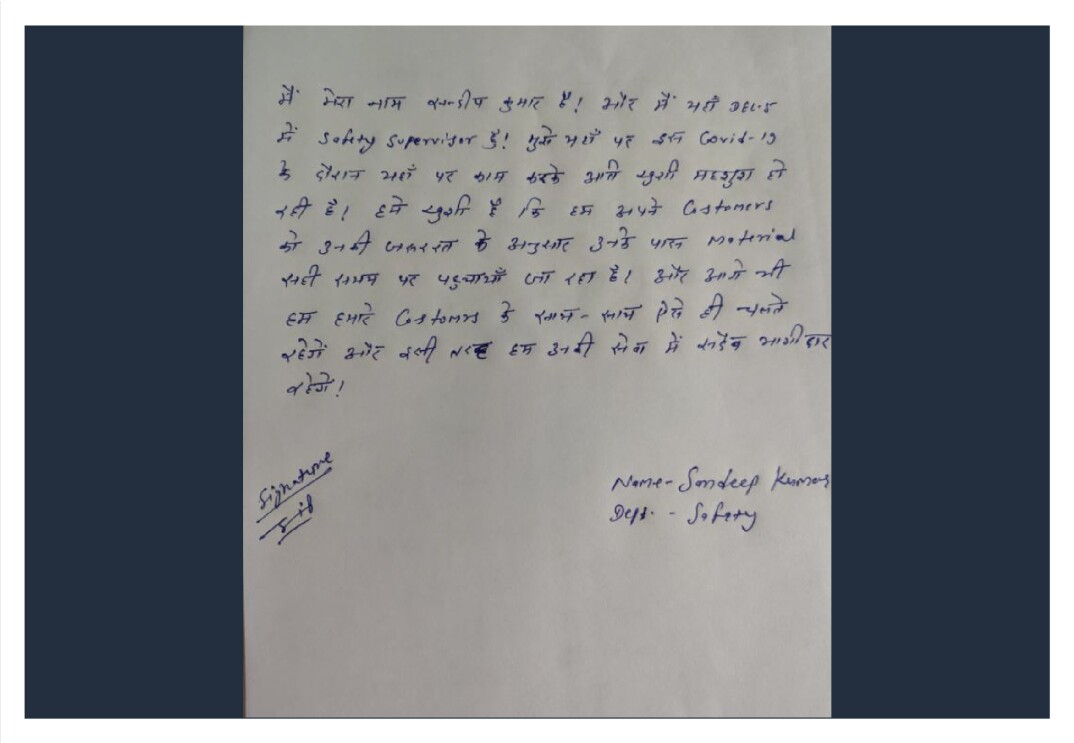 मैं मेरा नाम सन्दीप कुमार है! और मैं यहाँ DEL-5
में Safety Supervisor हूँ! मुझे यहाँ पर इस Covid-19
के दौरान यहाँ पर काम करके अति खुशी महशुश हो
रही है! हमें खुशी है कि हम अपने Customers
को उनकी जरूरत के अनुसार उनके पास material
सही समय पर पहुचायाँ जा रहा है! और आगे भी
हम हमारे Customers के साथ-साथ ऐसे ही चलते
रहेगें और इसी तरह हम उनकी सेवा में सदैव भागीदार
रहेगें!
Signature
Name- Sandeep Kumar
Dept. - Safety